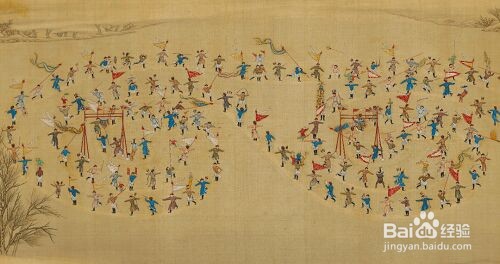 Baidu 经验
jingyan.baidu.com